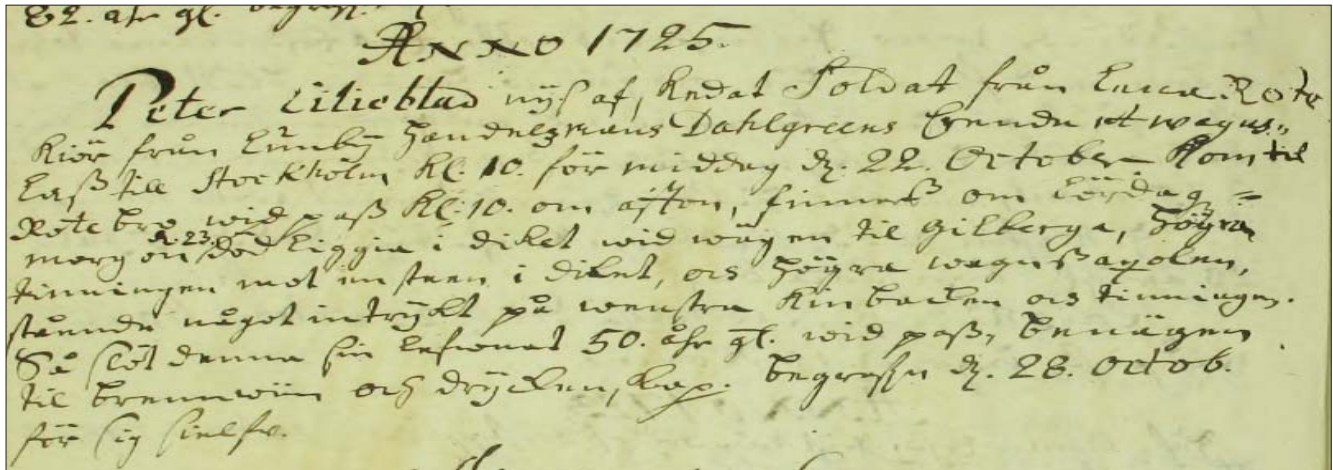 82. åhr gl. begrafs.
ANNO 1725.
Peter Lilieblad nys af,kedat Soldat från Lenna Rote
kiör från Lunby Handelzmans Dahlgreens Erende et wagns„
laß till Stockholm Kl. 10. för middag dz. 22. October Kom til
Rotebro wid paß Kl: 10. om afton, finnes om Lördag =
morgon d. 23. död liggia i diket wid wägen til Gilberga, högra
tinningen mot en steen i diket, och högra wagns axolen,
stående något intrykt på wenstra Kinbacken och tinningen.
Så slöt denna sin lefnad 50. åhr gl. wid paß, benägen
til brennwiin och dryckenskap. begrafen dz. 28. Octob.
för sig sielfv.